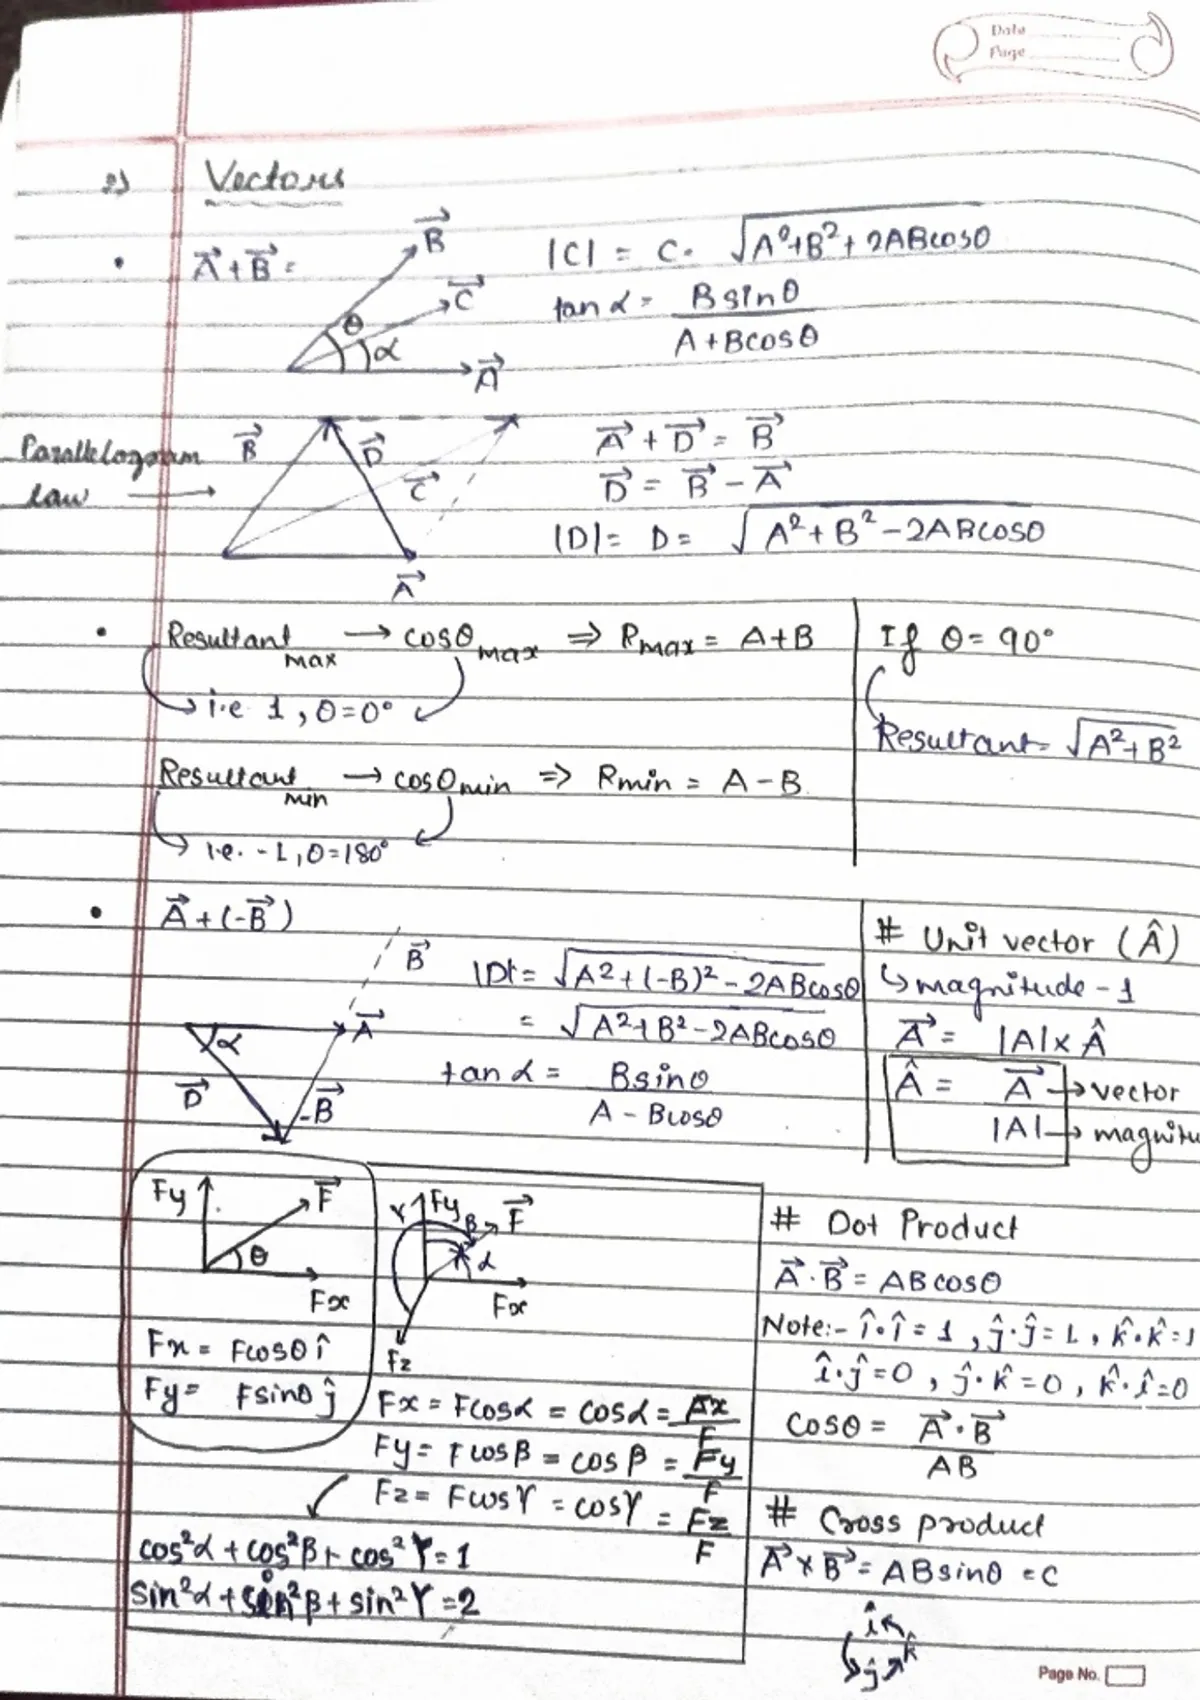 Date
Page
2) Vectors
• A⃗ + B⃗ =
B⃗
C⃗
θ
α
A⃗
|C| = C = √A²+B²+2ABcosθ
tan α = Bsinθ
A+Bcosθ
Parallelogram
law →
B⃗
D⃗
C⃗
A⃗
A⃗ + D⃗ = B⃗
D⃗ = B⃗ - A⃗
|D| = D = √A²+B²-2ABcosθ
• Resultant max → cosθ max ⇒ Rmax = A+B
i.e 1, θ=0°
Resultant min → cosθ min ⇒ Rmin = A-B
i.e. -1, θ=180°
If θ = 90°
Resultant = √A²+B²
• A⃗ + (-B⃗)
B⃗
A⃗
α
D⃗
-B⃗
|D| = √A²+(-B)²-2ABcosθ
= √A²+B²-2ABcosθ
tan α = Bsinθ
A - Bcosθ
# Unit vector (Â)
↳ magnitude - 1
A⃗ = |A| x Â
Â = A⃗ → vector
|A| → magnitu
Fy
F⃗
θ
Fx
Fx = Fcosθ î
Fy = Fsinθ ĵ
γ
Fy
β
F⃗
α
Fx
Fz
Fx = Fcosα = cosα = Fx
F
Fy = Fcosβ = cosβ = Fy
F
Fz = Fcosγ = cosγ = Fz
F
cos²α + cos²β + cos²γ = 1
sin²α + sin²β + sin²γ = 2
# Dot Product
A⃗ . B⃗ = ABcosθ
Note:- î.î = 1, ĵ.ĵ = 1, k̂.k̂ = 1
î.ĵ = 0, ĵ.k̂ = 0, k̂.î = 0
Cosθ = A⃗ . B⃗
AB
# Cross product
A⃗ x B⃗ = ABsinθ = C
î
k̂
ĵ
Page No.